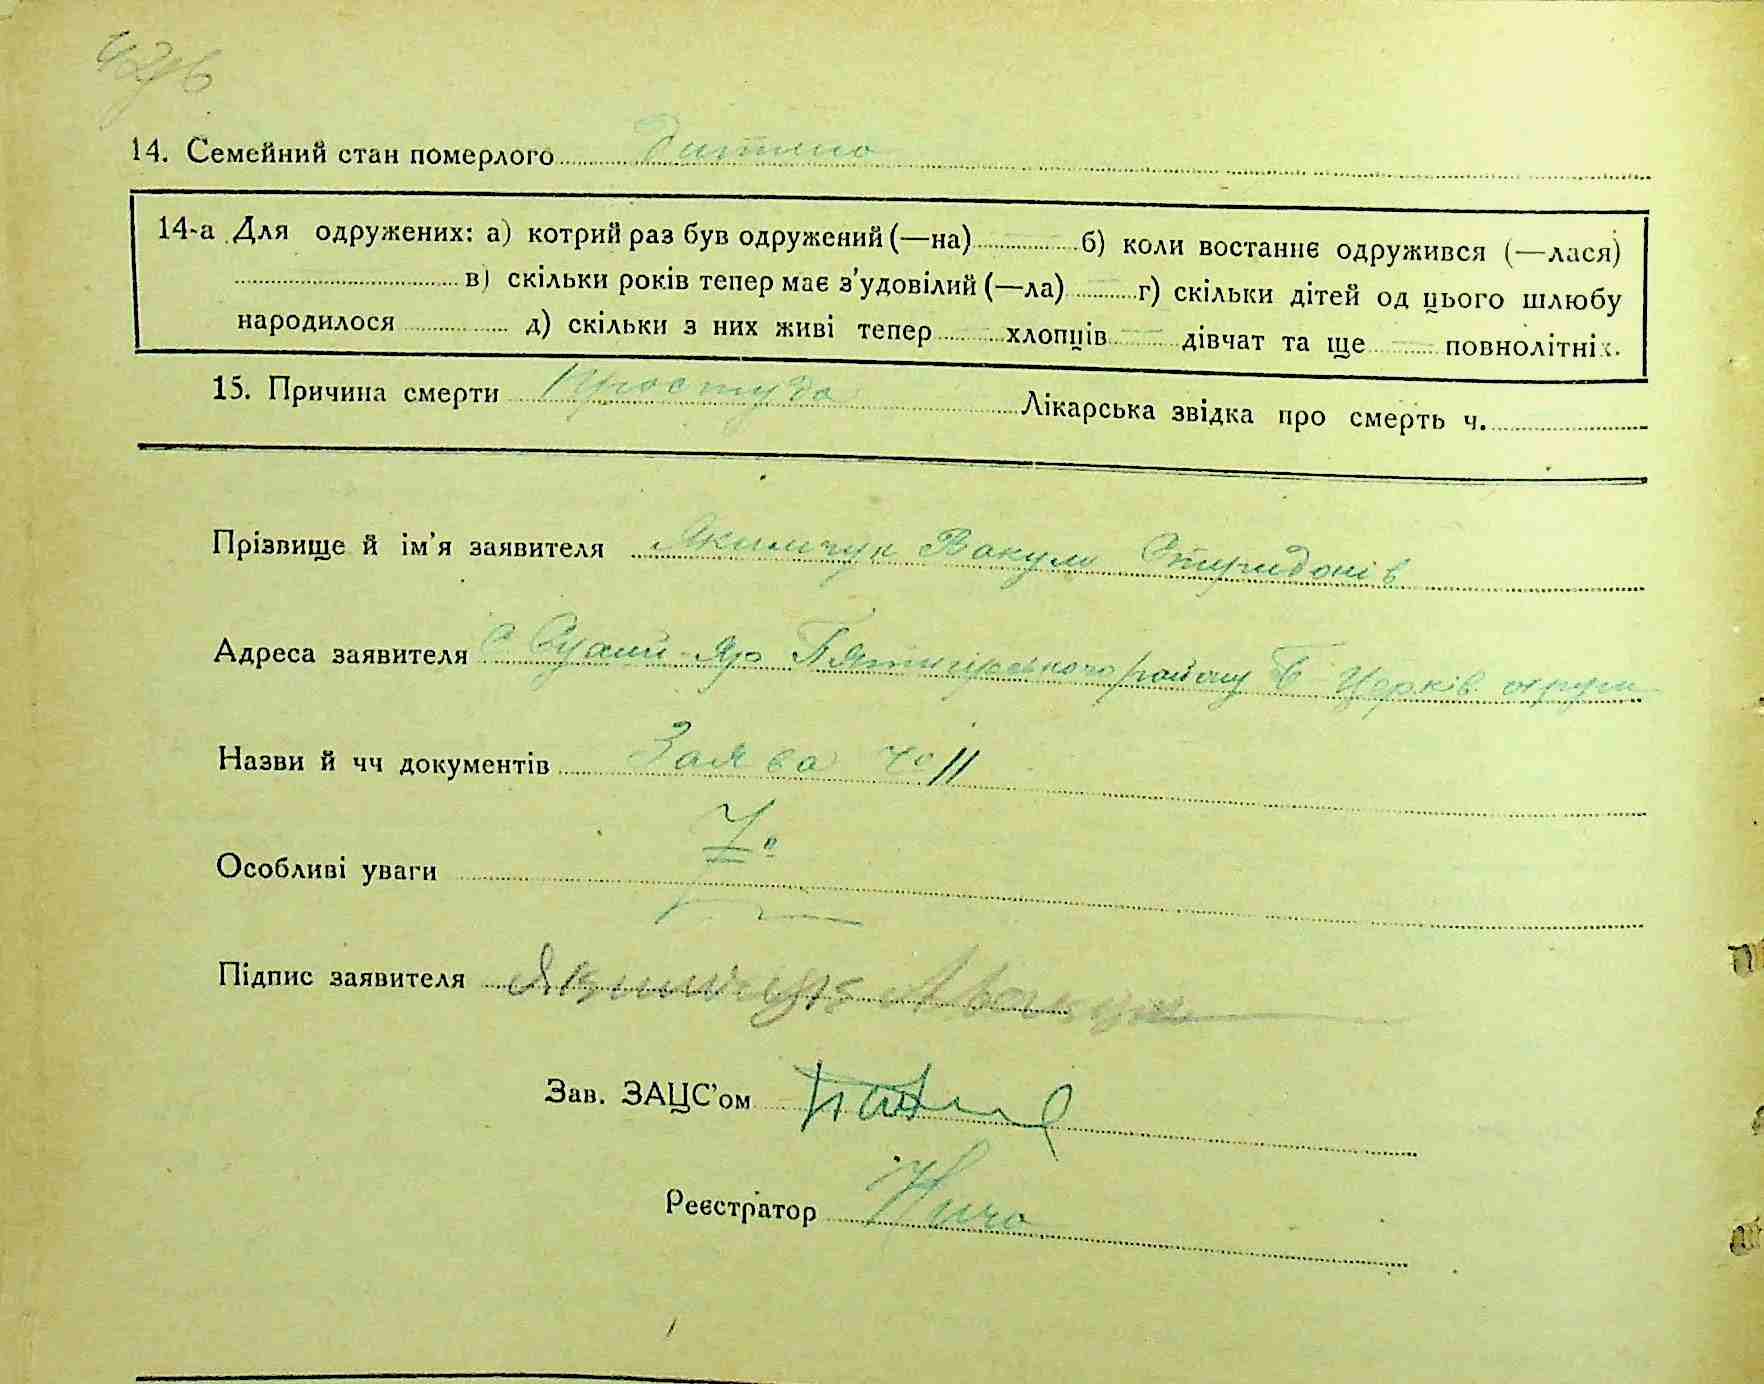 42зв
14. Семейний стан померлого Дитина
14-а Для одружених: а) котрий раз був одружений (—на) б) коли востаннє одружився (—лася)
в) скільки років тепер має з’удовілий (—ла) г) скільки дітей од цього шлюбу
народилося д) скільки з них живі тепер хлопців дівчат та ще повнолітніх.
15. Причина смерти Простуда Лікарська звідка про смерть ч.
Прізвище й ім’я заявителя Якимчук Вакула Спиридонів
Адреса заявителя с Сухий-Яр П'ятигірського району Б Церків округи
Назви й чч документів Заява чо 11
Особливі уваги
Підпис заявителя Якимчук
Зав. ЗАЦС’ом
Реєстратор